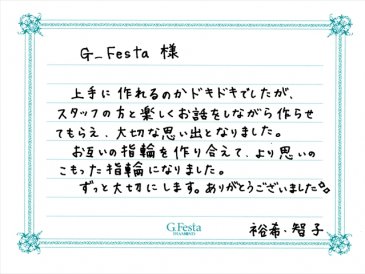 G_Festa 様
上手に作れるのかドキドキでしたが、
スタッフの方と楽しくお話をしながら作らせ
てもらえ、大切な思い出となりました。
お互いの指輪を作り合えて、より思いの
こもった指輪になりました。
ずっと大切にします。ありがとうございました。
G.Festa
裕希・智子